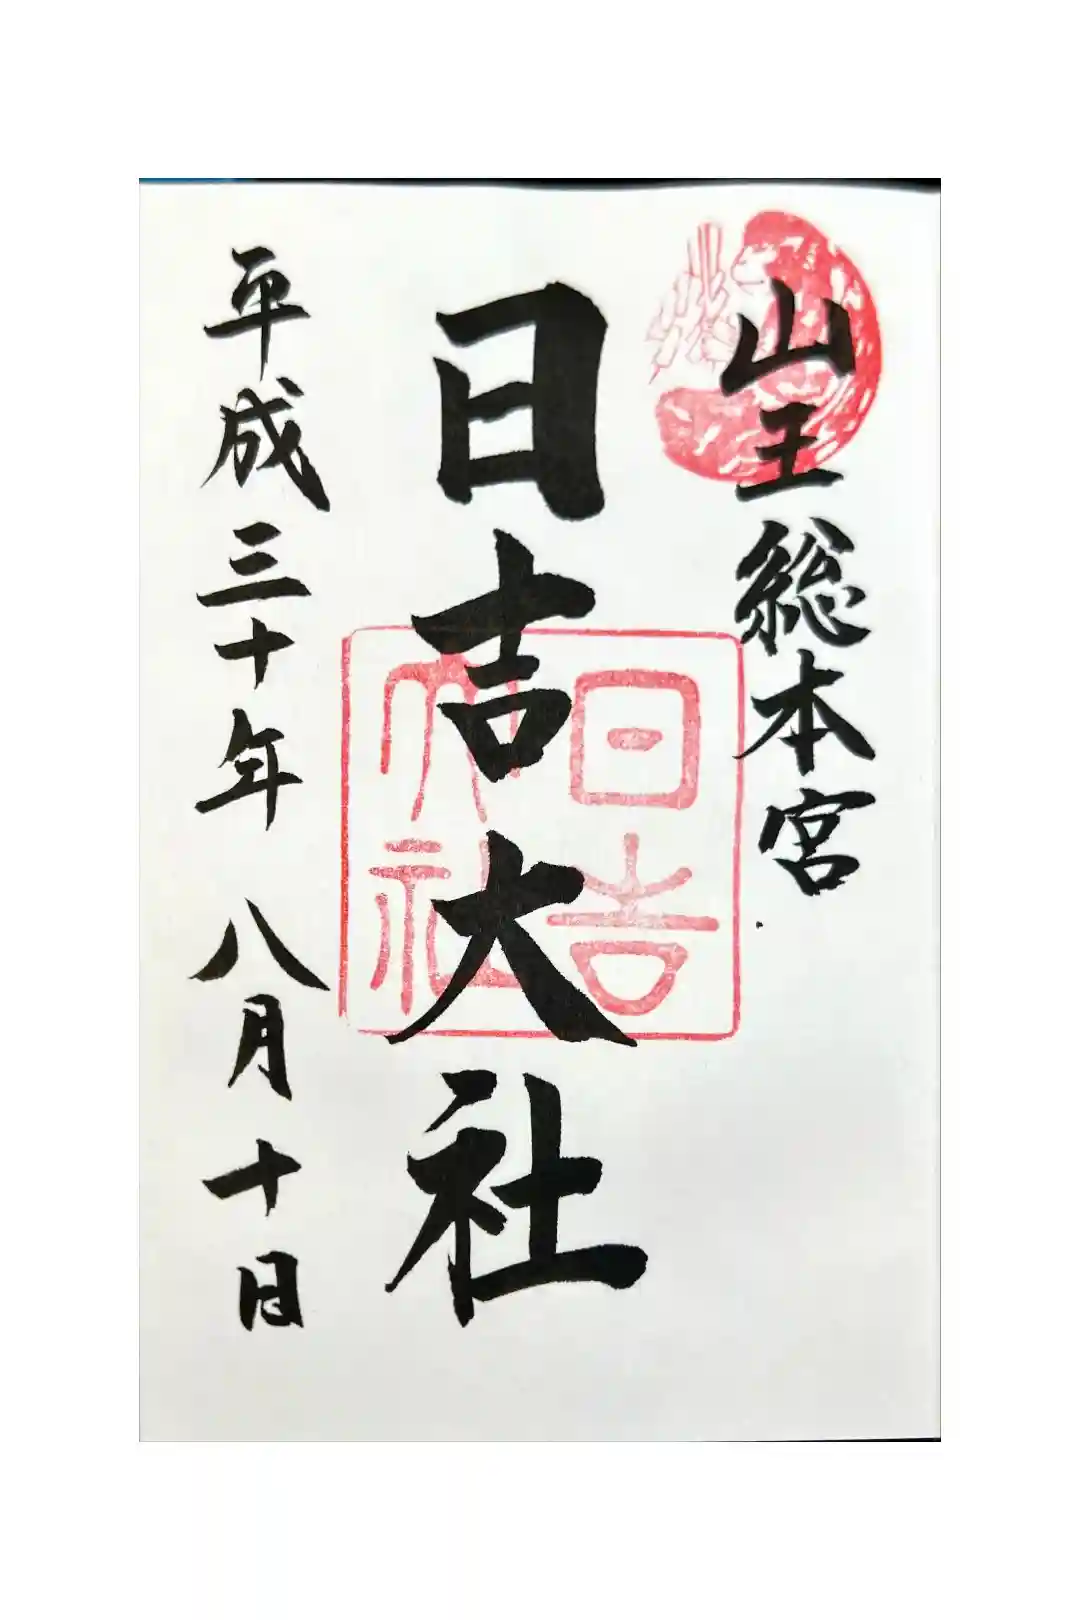 山王総本宮
日吉大社
日吉大社
平成三十年 八月十日